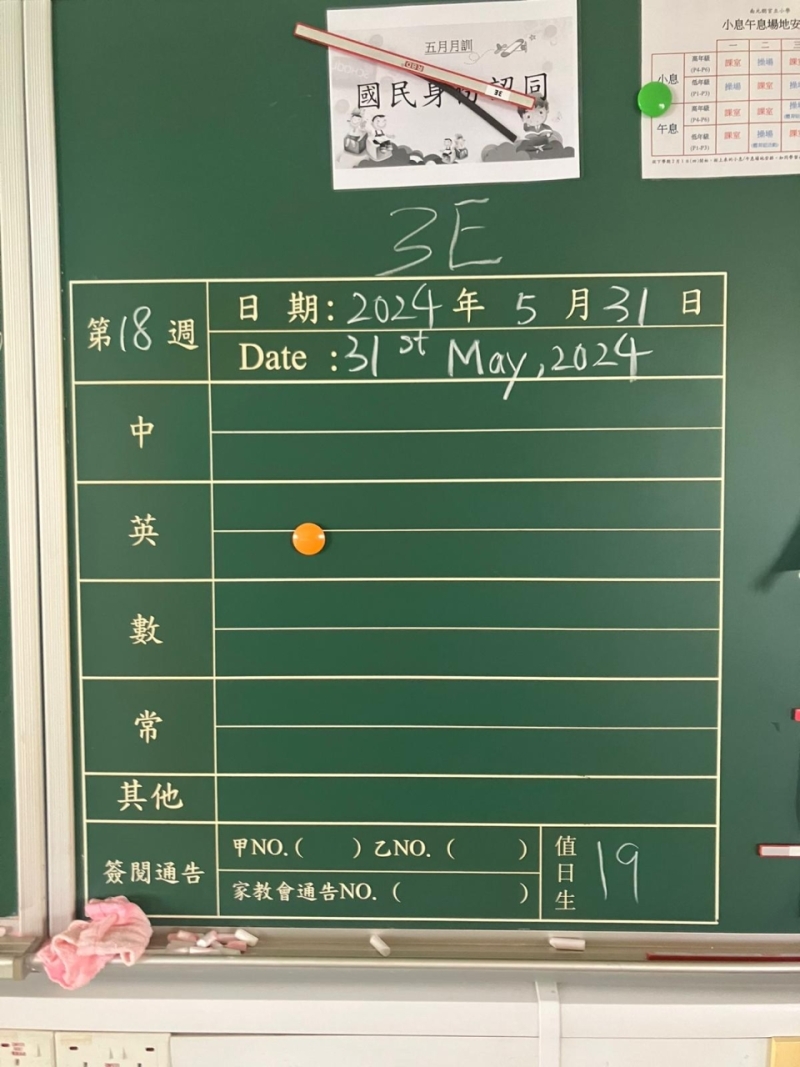 五月月訓
國民身份認同
小息午息場地安
一 二 三
小息
高年級 課室 操場
(P4-P6)
低年級 操場 課室
(P1-P3)
午息
高年級 課室 課室
(P4-P6)
低年級 課室 操場
(P1-P3)
3E
第18週
日期:2024年5月31日
Date :31st May,2024
中
英
數
常
其他
簽閱通告
甲NO.( )乙NO.( )
家教會通告NO.( )
值日生 19